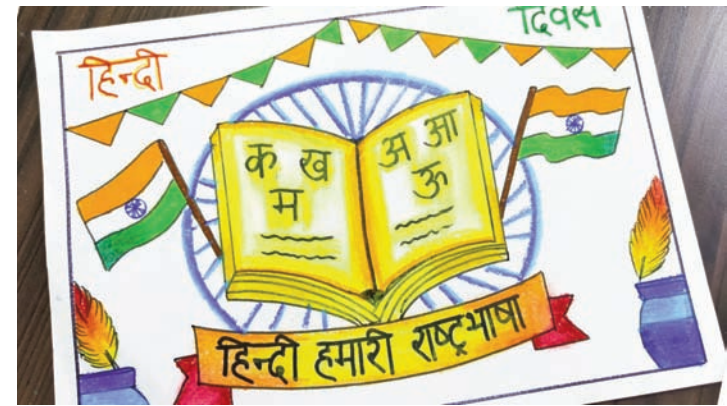 हिन्दी दिवस
क ख
म
अ आ
ऊ
हिन्दी हमारी राष्ट्रभाषा